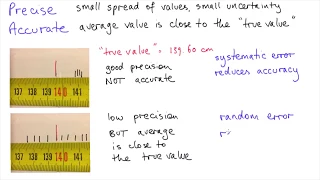 Precise small spread of values, small uncertainty
Accurate average value is close to the "true value"
"true value": 139.60 cm
good precision systematic error
NOT accurate reduces accuracy
137 138 139 140 141
low precision random error
BUT average r
is close to
the true value
137 138 139 140 141